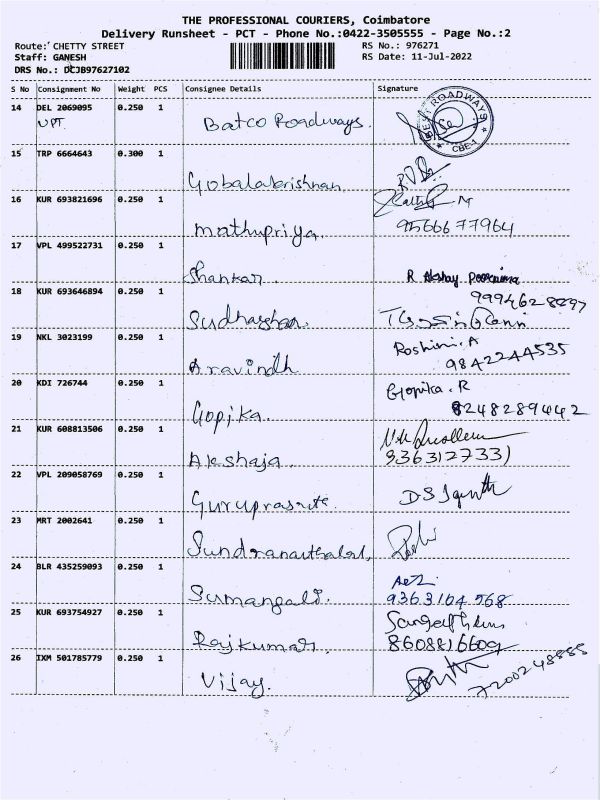 THE PROFESSIONAL COURIERS, Coimbatore
Delivery Runsheet - PCT - Phone No.:0422-3505555 - Page No.:2
Route: CHETTY STREET RS No.: 976271
Staff: GANESH RS Date: 11-Jul-2022
DRS No.: DCJB97627102
S No Consignment No Weight PCS Consignee Details Signature
14 DEL 2069095 0.250 1 Batco Roadways.
UPT
ROADWAYS CBE-1
15 TRP 6664643 0.300 1
Gobalakrishnan
16 KUR 693821696 0.250 1 M
Mathupriya. 9566677964
17 VPL 499522731 0.250 1
Shankar. R Akshay Poornima
18 KUR 693646894 0.250 1 9994628897
Sudharshan
19 NKL 3023199 0.250 1 Roshini. A
Aravindh 9842244535
20 KDI 726744 0.250 1 Gopika. R
Gopika. 8248289442
21 KUR 608813506 0.250 1
Akshaja. 9363127331
22 VPL 209058769 0.250 1
23 MRT 2002641 0.250 1
24 BLR 435259093 0.250 1
Sumangali. 9363104568
25 KUR 693754927 0.250 1
Rajkumar. 8608816609
26 IXM 501785779 0.250 1 7200248885
Vijay.